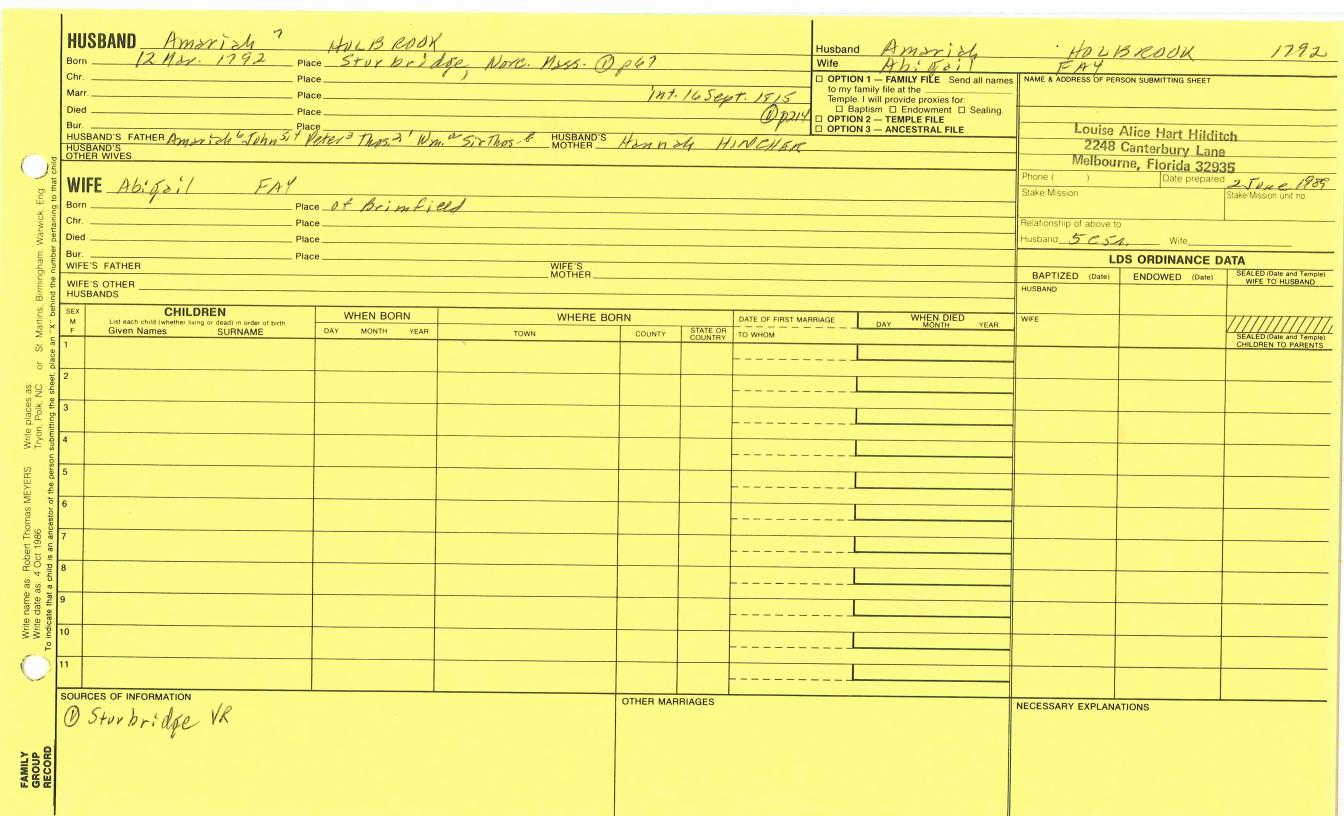 HUSBAND Amariah 7 HOLBROOK
Born 12 Mar. 1792 Place Sturbridge, Worc. Mass. ① p67
Chr. Place
Marr. Place int. 16 Sept. 1815
Died Place ① p214
Bur. Place
HUSBAND'S FATHER Amariah 6 John 5, 4 Peter 3 Thos. 2, 1 Wm. a Sir Thos. B HUSBAND'S MOTHER Hannah HINCHER
HUSBAND'S OTHER WIVES
WIFE Abigail FAY
Born Place of Brimfield
Chr. Place
Died Place
Bur. Place
WIFE'S FATHER WIFE'S MOTHER
WIFE'S OTHER HUSBANDS
Husband Amariah HOLBROOK 1792
Wife Abigail FAY
☐ OPTION 1 — FAMILY FILE Send all names
to my family file at the
Temple. I will provide proxies for:
☐ Baptism ☐ Endowment ☐ Sealing.
☐ OPTION 2 — TEMPLE FILE
☐ OPTION 3 — ANCESTRAL FILE
NAME & ADDRESS OF PERSON SUBMITTING SHEET
Louise Alice Hart Hilditch
2248 Canterbury Lane
Melbourne, Florida 32935
Phone ( ) Date prepared 2 June 1989
Stake/Mission Stake/Mission unit no.
Relationship of above to
Husband 5 csn. Wife
LDS ORDINANCE DATA
BAPTIZED (Date) ENDOWED (Date) SEALED (Date and Temple) WIFE TO HUSBAND
HUSBAND
WIFE
SEALED (Date and Temple)
CHILDREN TO PARENTS
SEX
M
F
CHILDREN
List each child (whether living or dead) in order of birth
Given Names SURNAME
WHEN BORN
DAY MONTH YEAR
WHERE BORN
TOWN COUNTY STATE OR COUNTRY
DATE OF FIRST MARRIAGE
TO WHOM
WHEN DIED
DAY MONTH YEAR
1
2
3
4
5
6
7
8
9
10
11
SOURCES OF INFORMATION
① Sturbridge VR
OTHER MARRIAGES
NECESSARY EXPLANATIONS
Write name as: Robert Thomas MEYERS Write places as: Tryon, Polk, NC or St. Martins, Birmingham, Warwick, Eng.
Write date as: 4 Oct 1986
To indicate that a child is an ancestor of the person submitting the sheet, place an "X" behind the number pertaining to that child
FAMILY
GROUP
RECORD